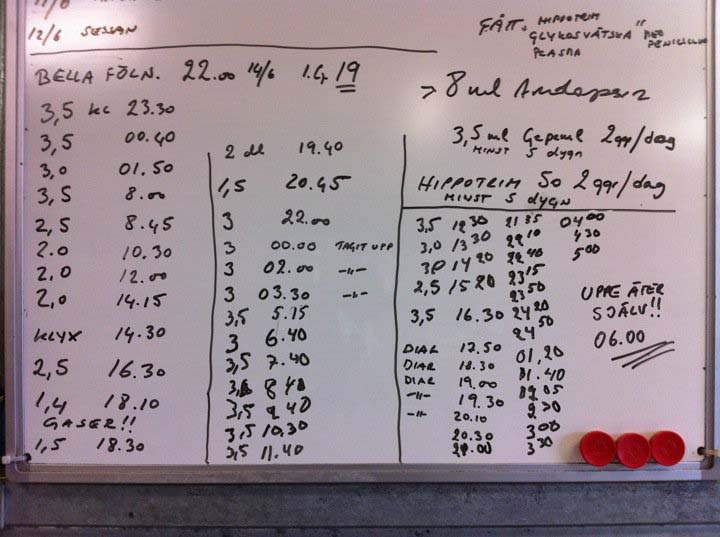 12/6 SESSAN
FÅTT. HIPPOTRIM
GLYKOSVÄTSKA
PLASMA
BELLA FÖLN. 22.00 14/6 19
→ 8 ml
3,5 ml 2ggr/dag
MINST 5 dygn
HIPPOTRIM 50 2 ggr/dag
MINST 5 dygn
3,5 kl 23.30
3,5 00.40
3,0 01.50
3,5 8.00
2,5 8.45
2.0 10.30
2.0 12.00
2,0 14.15
KLYX 14.30
2,5 16.30
1,4 18.10
GASER!!
1,5 18.30
2 dl 19.40
1,5 20.45
3 22.00
3 00.00 TAGIT UPP
3 02.00 -"-
3 03.30 -"-
3,5 5.15
3 6.40
3,5 7.40
8 40
3,5 9 40
3,5 10,30
3,5 11.40
3,5 12 30 21 35 04 00
3,0 13 30 22 10 4 30
30 14 20 22 40 5 00
2,5 15 20 23 15
23 50
3,5 16.30 24 20
24 50
DIAR 17.50 01,20
DIAR 18.30 01.40
DIAR 19.00
-"- 19.30
-"- 20.10
20.30 3 00
3 30
UPPE ÄTER
SJÄLV!!
06.00